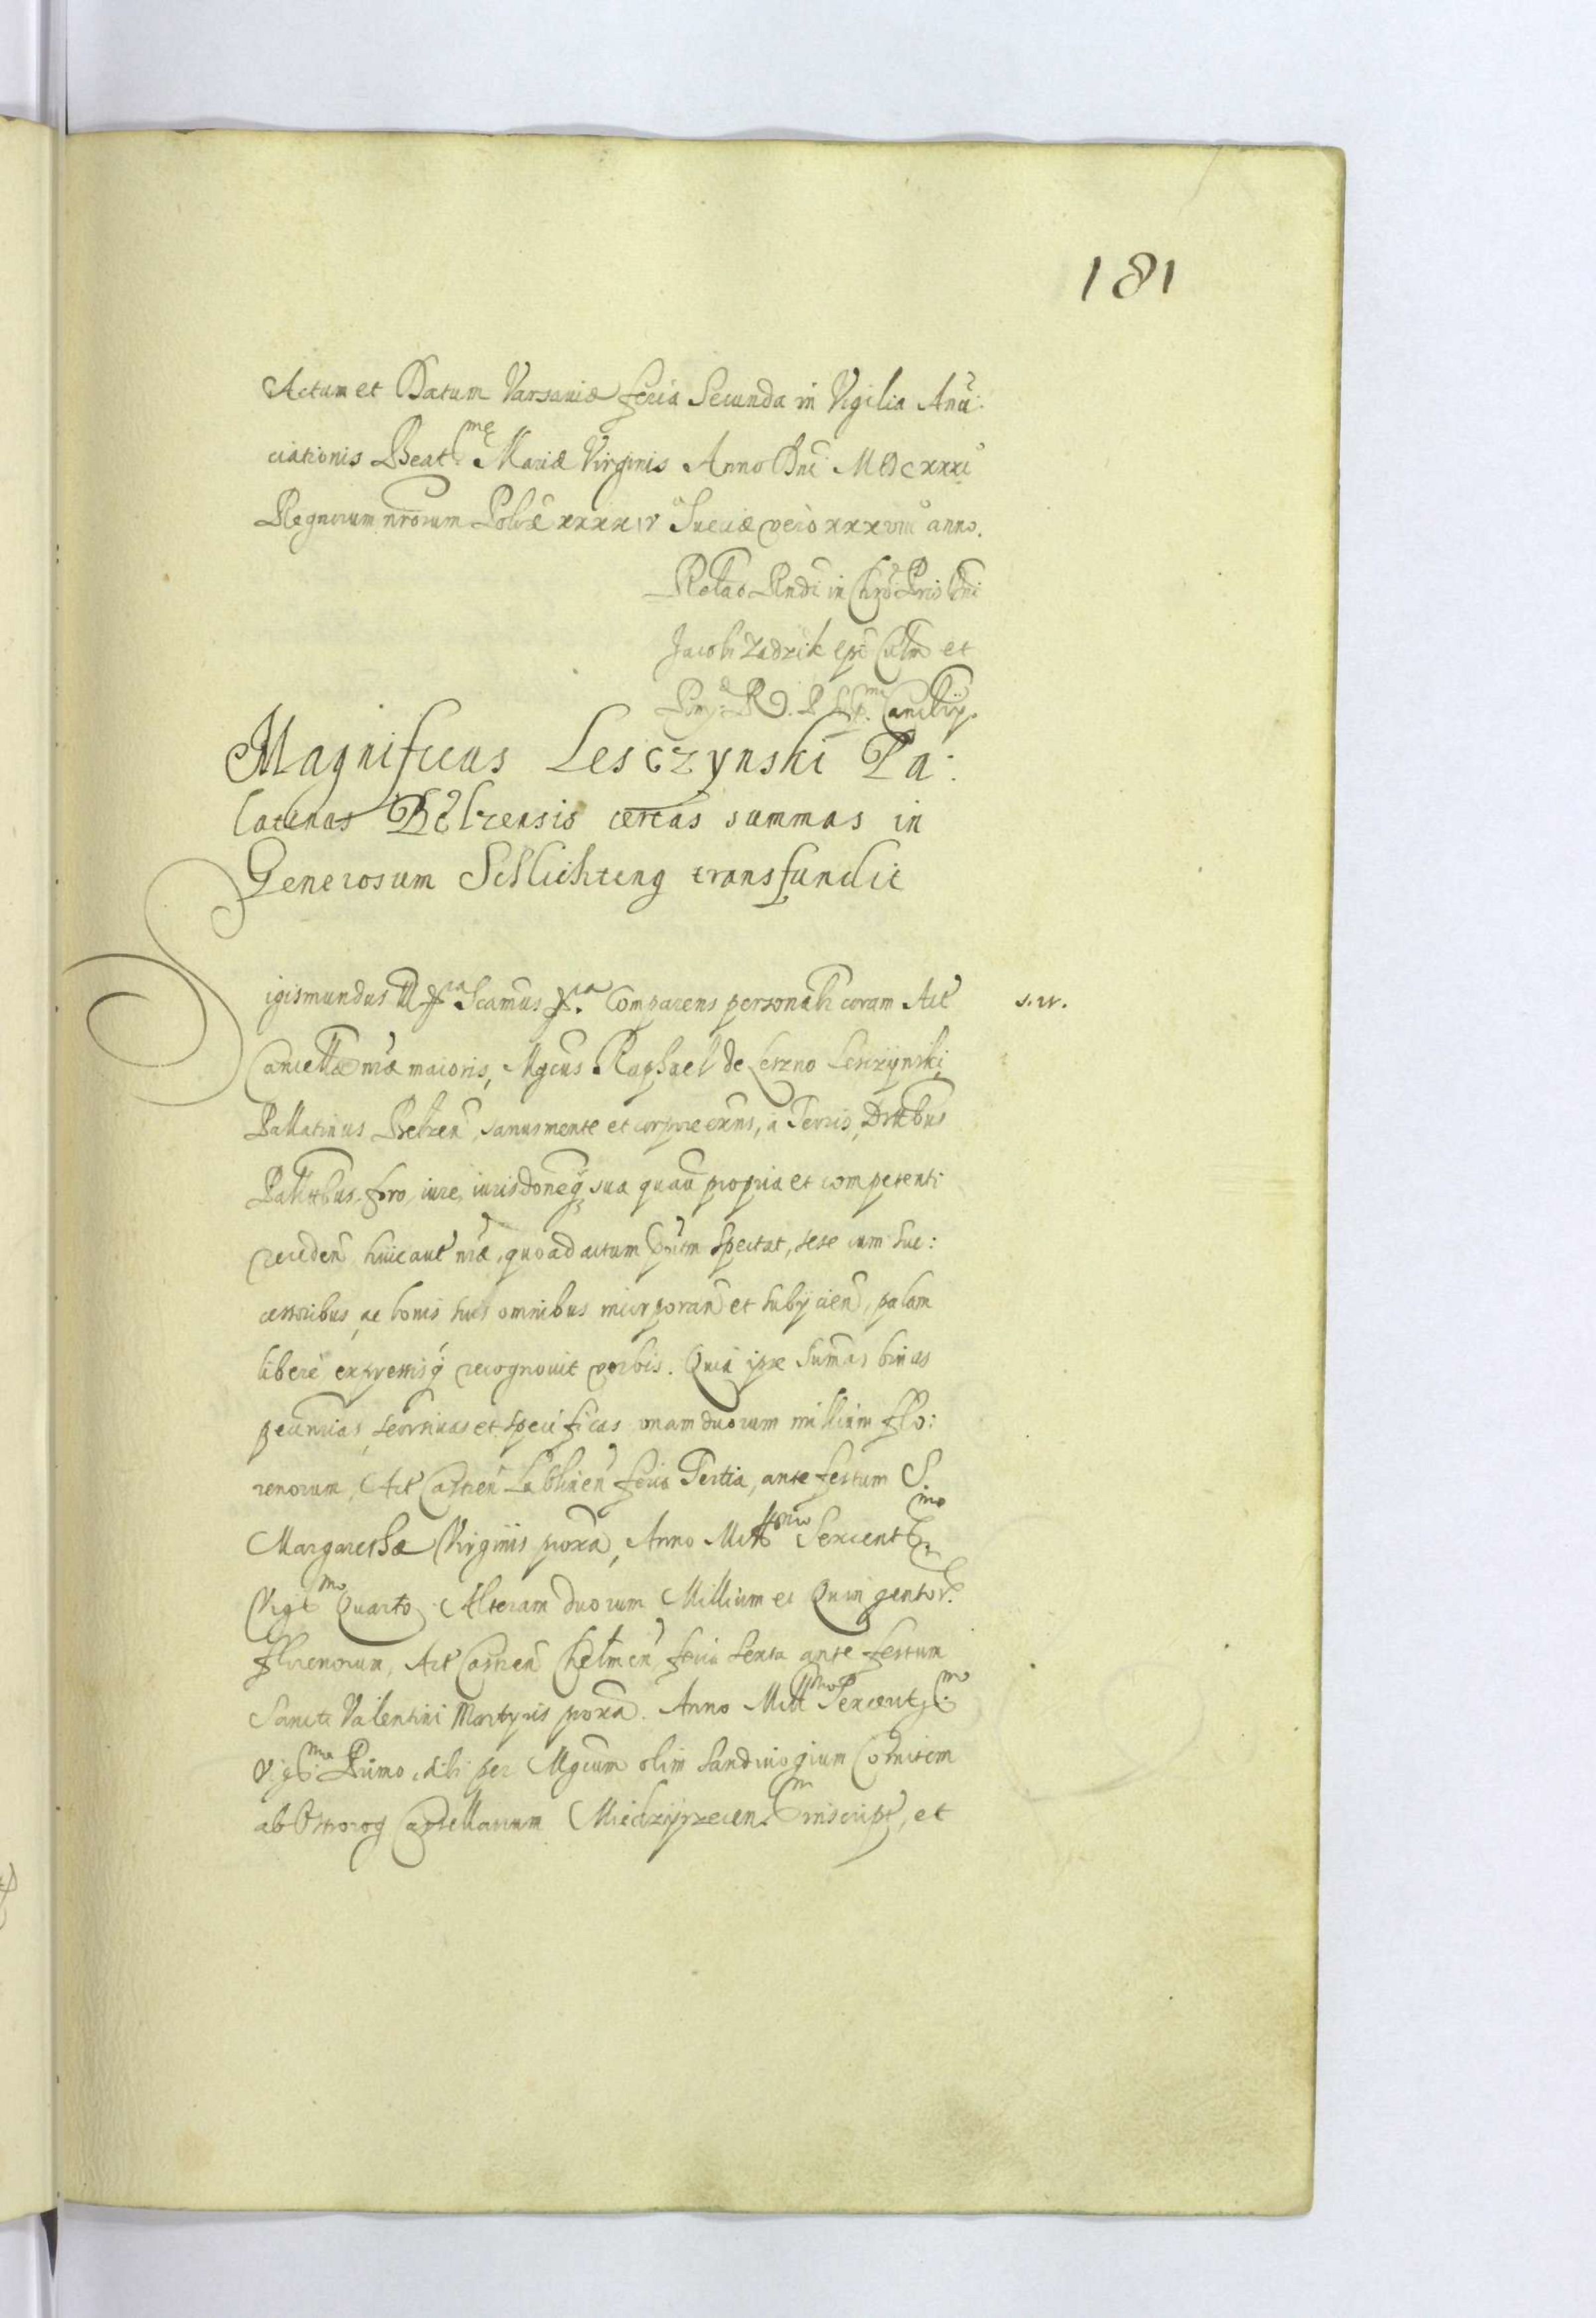 181
Actum et Datum Varsaviæ feria Secunda in Vigilia Anū:
ciationis Beat: mæ Mariæ Virginis Anno Dni MDCxxxi°
Regnorum nrorum Polõæ xxxxiv° Sueciæ vero xxxviii° anno.
Relao Rndi in Chro Pris Dni
Jacobi Zadzik epi Culm et
Pom: R. P. Cancllrÿ.
Magnificus Lesczynski Pa:
latinus Belzensis certas summas in
Generosum Schlichting transfundit
Sigismundus III ra Scamus ra Comparens personalr coram Act
s.w.
Cancellæ nræ maioris, Mgcus Raphael de Leszno Lesczÿnski
Pallatinus Belzeñ, sanus mente et corpore exns, a Terris, Drttbus
Palttbus foro, iure, iurisdoneq sua quavis propria et competenti
receden huic aut nræ, quoad actum pntm spectat, sese cum suc:
cessoribus, ac bonis suis omnibus incorporan et subÿcien, palam
libere expressisq recognovit verbis. Quia ipse Sumas binas
pecunias, seorsivas et specificas unam duorum millium flo:
renorum, Act Castreñ Lubliñeñ feria Tertia, ante festum S.
Margarethæ Virginis proxa, Anno Mill mo Sexcent mo
Vig mo Quarto Alteram duorum Millium et Quingentor.
florenorum, Act Castreñ Chelmeñ feria Sexta ante festum
Sancti Valentini Martyris proxa. Anno Mill mo Sexcent mo
Vig mo Primo, sibi per Mgcum olim Sandivogium Comitem
ab Ostrorog Castellanum Miedzÿrzecen. inscript, et